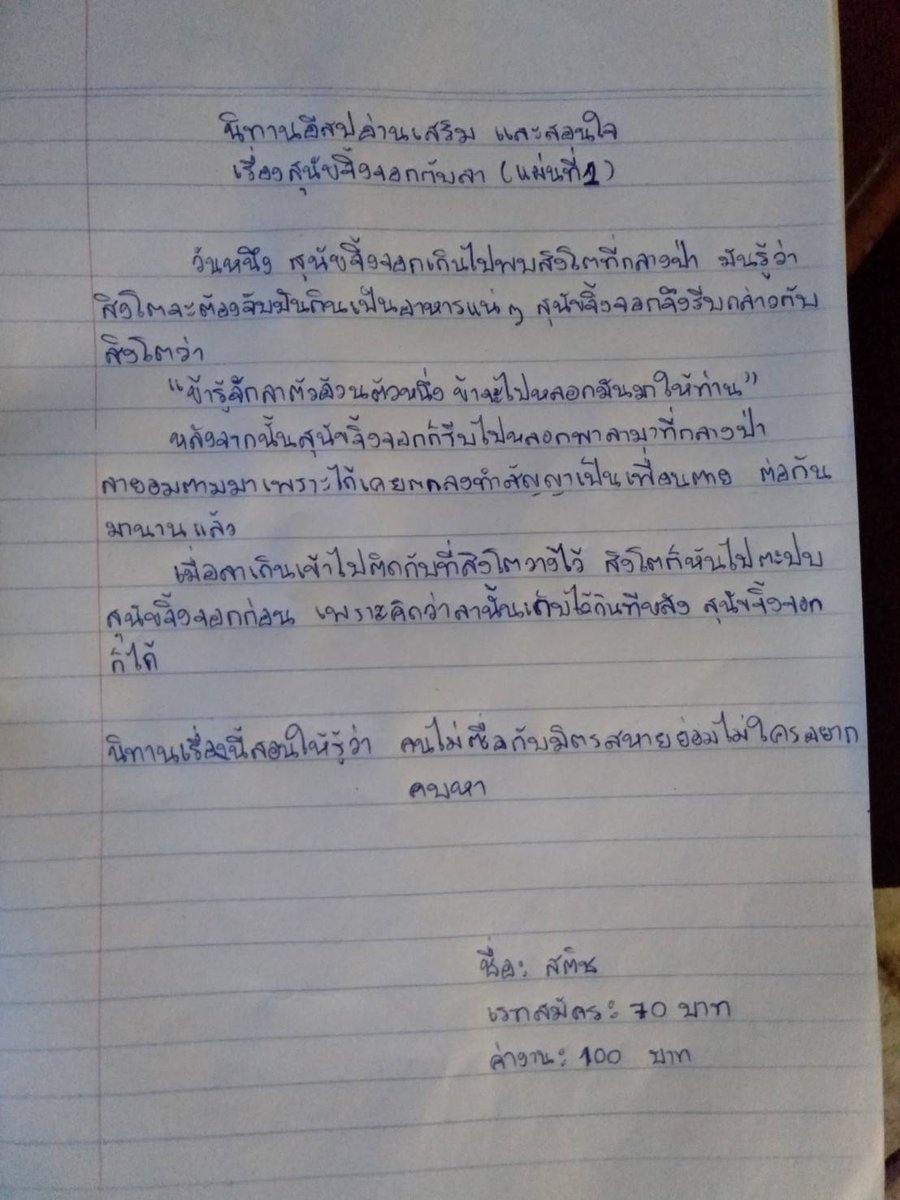 นิทานอีสปอ่านเสริม และสอนใจ
เรื่องสุนัขจิ้งจอกกับลา (แผ่นที่1)
วันหนึ่ง สุนัขจิ้งจอกเดินไปพบสิงโตที่กลางป่า มันรู้ว่า
สิงโตจะต้องจับมันกินเป็นอาหารแน่ๆ สุนัขจิ้งจอกจึงรีบกล่าวกับ
สิงโตว่า
“ข้ารู้จักลาตัวอ้วนตัวหนึ่ง ข้าจะไปหลอกมันมาให้ท่าน”
หลังจากนั้นสุนัขจิ้งจอกก็รีบไปหลอกพาลามาที่กลางป่า
ลายอมตามมาเพราะได้เคยตกลงทำสัญญาเป็นเพื่อนตาย ต่อกัน
มานานแล้ว
เมื่อลาเดินเข้าไปติดกับที่สิงโตวางไว้ สิงโตก็หันไปตะปบ
สุนัขจิ้งจอกก่อน เพราะคิดว่าลานั้นเก็บไว้กินทีหลัง สุนัขจิ้งจอก
ก็ได้
นิทานเรื่องนี้สอนให้รู้ว่า คนไม่ซื่อกับมิตรสหายย่อมไม่ใครอยาก
คบหา
ชื่อ: สติช
เรทสมัคร: 70 บาท
ค่างาน: 100 บาท